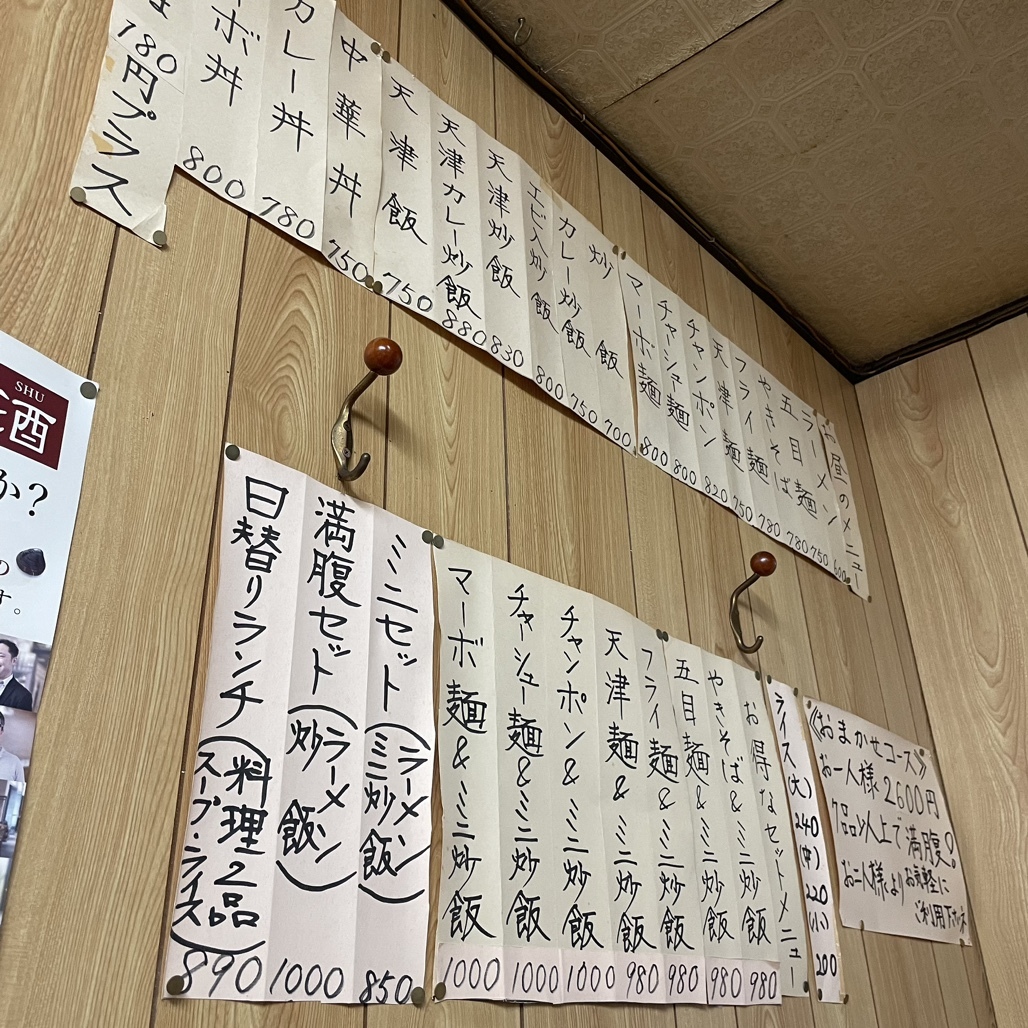 お昼のメニュー
ラーメン 600
五目麺 750
やきそば 780
フライ麺 780
天津麺 750
チャンポン 820
チャーシュー麺 800
マーボ麺 800
炒飯 700
カレー炒飯 750
エビ入炒飯 800
天津炒飯 830
天津カレー炒飯 880
天津飯 750
中華丼 750
カレー丼 780
ーボ丼 800
180円プラス
《おまかせコース》
お一人様 2600円
7品以上で満腹!
お一人様よりお気軽に
ご利用下さいネ
ライス(大) 240 (中) 220 (小) 200
お得なセットメニュー
やきそば&ミニ炒飯 980
五目麺&ミニ炒飯 980
フライ麺&ミニ炒飯 980
天津麺&ミニ炒飯 980
チャンポン&ミニ炒飯 1000
チャーシュー麺&ミニ炒飯 1000
マーボ麺&ミニ炒飯 1000
ミニセット(ラーメン ミニ炒飯) 850
満腹セット(ラーメン 炒飯) 1000
日替りランチ(料理2品 スープ・ライス) 890
SHU
酒
か?
の
す。